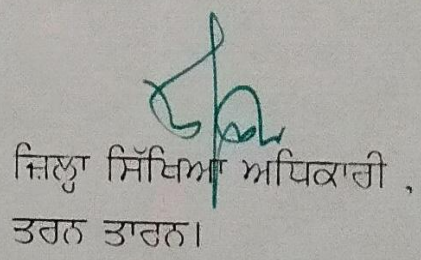 ਜ਼ਿਲ੍ਹਾ ਸਿੱਖਿਆ ਅਧਿਕਾਰੀ ,
ਤਰਨ ਤਾਰਨ।